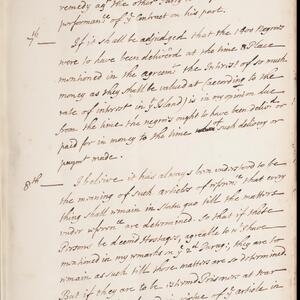 remedy agt. the other Party
performance of ye Contract on his part.
7th — If it shall be adjudged that the 1200 Negroes
were to have been deliver'd at the time & Place
mentioned in the agreemt. the Interest of so much
money as they shall be valued at (according to the
rate of interest in ye Island) is in my opinion due
from the time the negros ought to have been deliver'd or
paid for in money to the time of such delivery or
paymt made.
8th — I believe it has always been understood to be
the meaning of such articles of referrce that every
thing shall remain in statu quo till the matters
under referrce are determined. So that if these
Persons be deemd Hostages, agreable to wt I have
mentioned in my remarks on ye 2d Parag: they are to
remain as such till those matters are so determined.
But if they are to be esteemd Prisoners at War
of ye article in